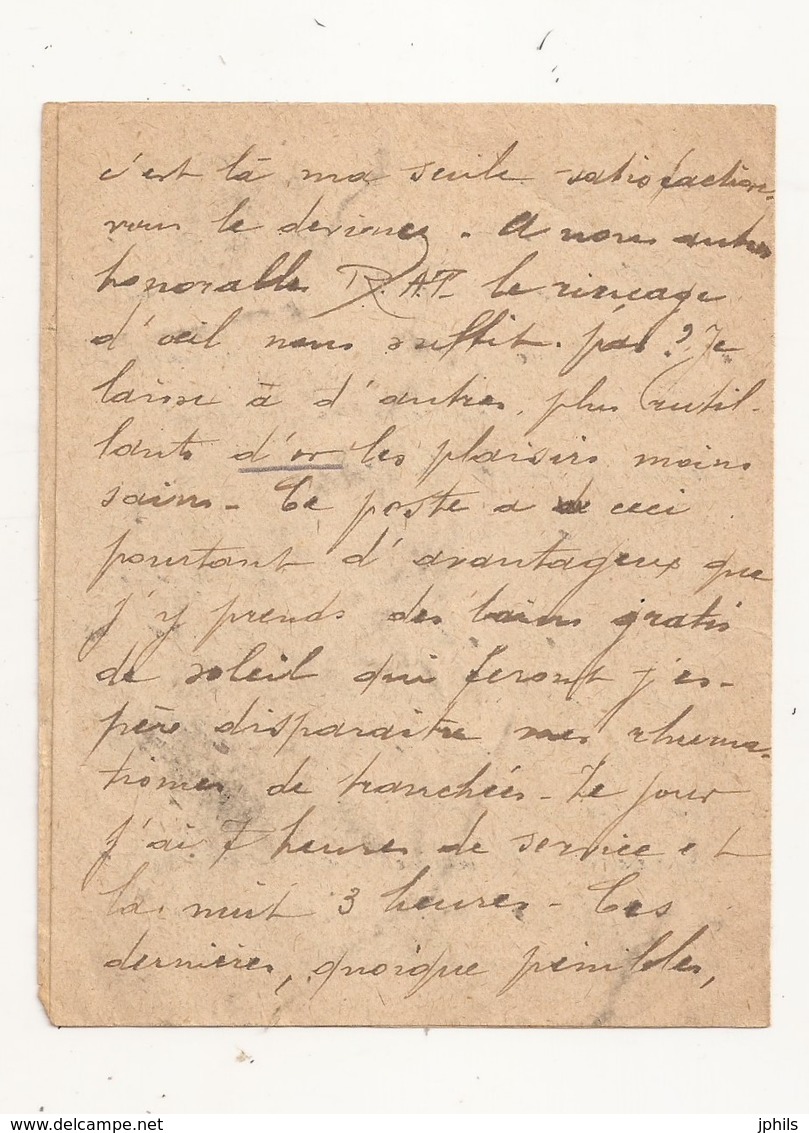 c'est là ma seule satisfaction
vous le devinez. A nous autres
honorables R.A.T. le rinçage
d'oeil nous suffit. pas ? Je
laisse à d'autres, plus rutil-
lants d'or les plaisirs moins
sains - Ce poste a de ceci
pourtant d'avantageux que
j'y prends des bains gratis
de soleil qui feront j'es-
père disparaitre mes rhuma-
tismes de tranchées - Le jour
j'ai 7 heures de service et
la nuit 3 heures - Ces
dernières, quoique pénibles,
www.delcampe.net
jphils